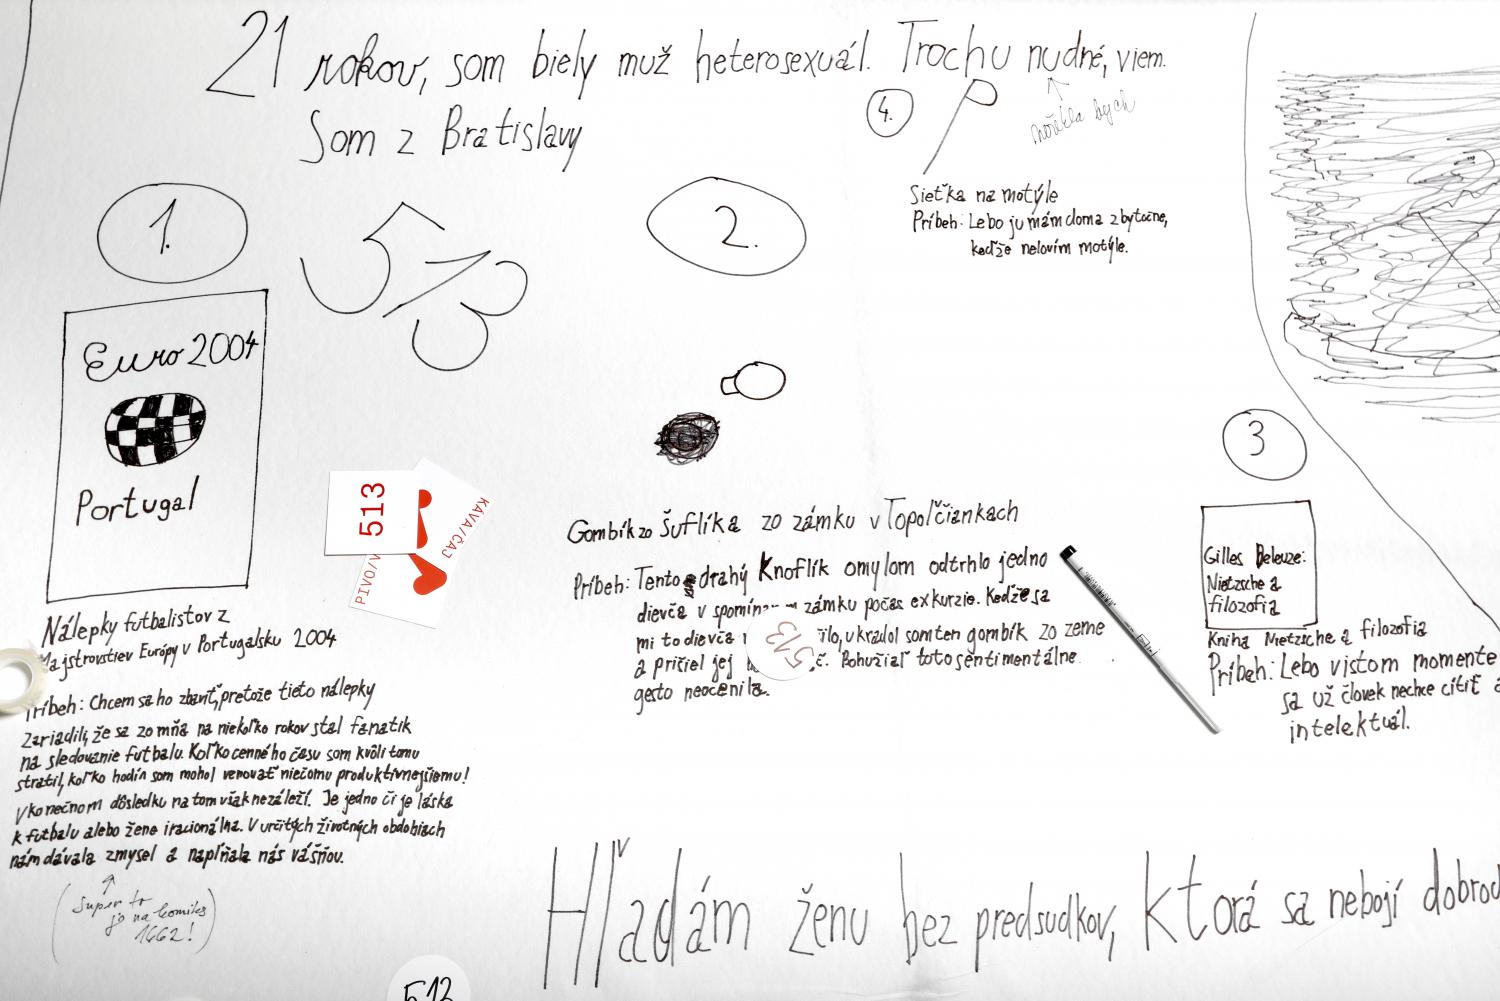 21 rokov, som biely muž heterosexuál. Trochu nudné, viem.
Som z Bratislavy
1.
513
Euro 2004
Portugal
Nálepky futbalistov z
Majstrovstiev Európy v Portugalsku 2004
Príbeh: Chcem sa ho zbaviť, pretože tieto nálepky
zariadili, že sa zo mňa na niekoľko rokov stal fanatik
na sledovanie futbalu. Koľko cenného času som kvôli tomu
stratil, koľko hodín som mohol venovať niečomu produktívnejšiemu!
V konečnom dôsledku na tom však nezáleží. Je jedno či je láska
k futbalu alebo žene iracionálna. V určitých životných obdobiach
nám dávala zmysel a napĺňala nás vášňou.
(super to
je na komiks
1662!)
513
KÁVA/ČAJ
PIVO/V
2.
Gombík zo šuflíka zo zámku v Topoľčiankach
Príbeh: Tento drahý knoflík omylom odtrhlo jedno
dievča v zámku počas exkurzie. Keďže sa
mi to dievča ilo, ukradol som ten gombík zo zeme
a pričiel jej č. Bohužiaľ toto sentimentálne
gesto neocenila.
513
4.
neřekla bych
Sieťka na motýle
Príbeh: Lebo ju mám doma zbytočne,
keďže nelovím motýle.
3
Gilles Deleuze:
Nietzsche a
filozofia
Kniha Nietzsche a filozofia
Príbeh: Lebo v istom momente
sa už človek nechce cítiť a
intelektuál.
Hľadám ženu bez predsudkov, ktorá sa nebojí dobrod
513